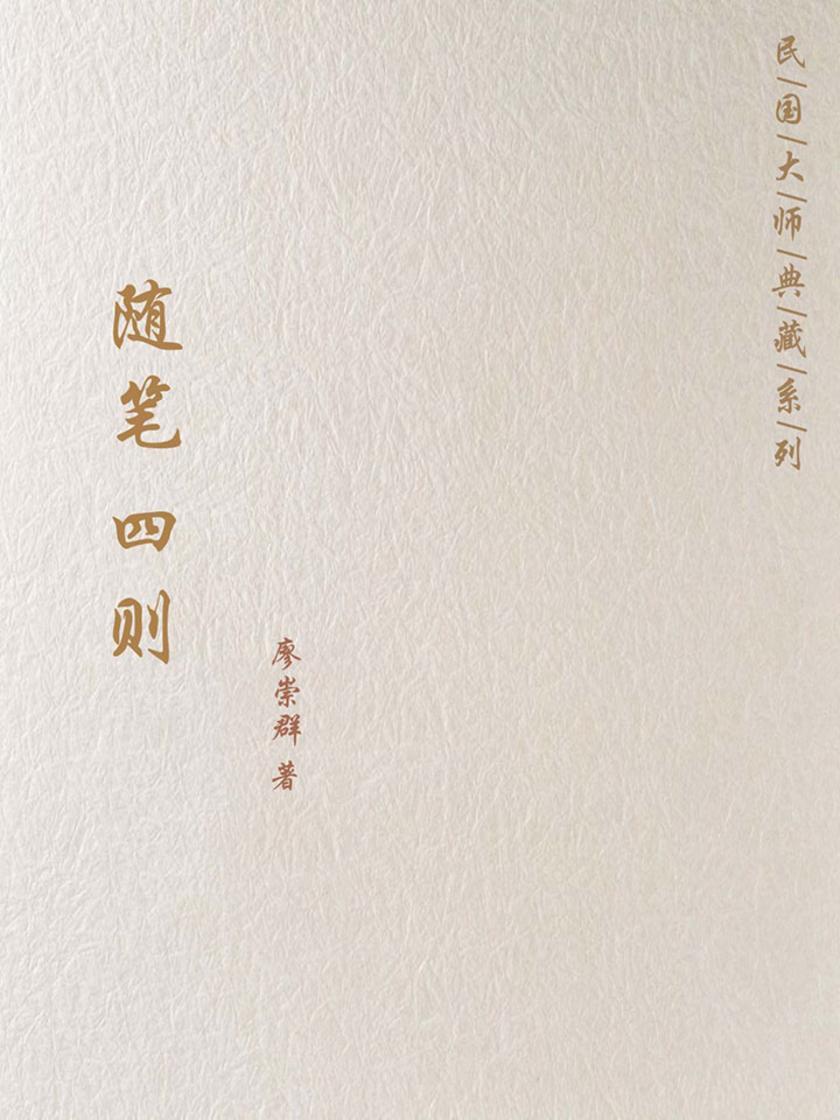 民国大师典藏系列
随笔 四则
廖崇群 著